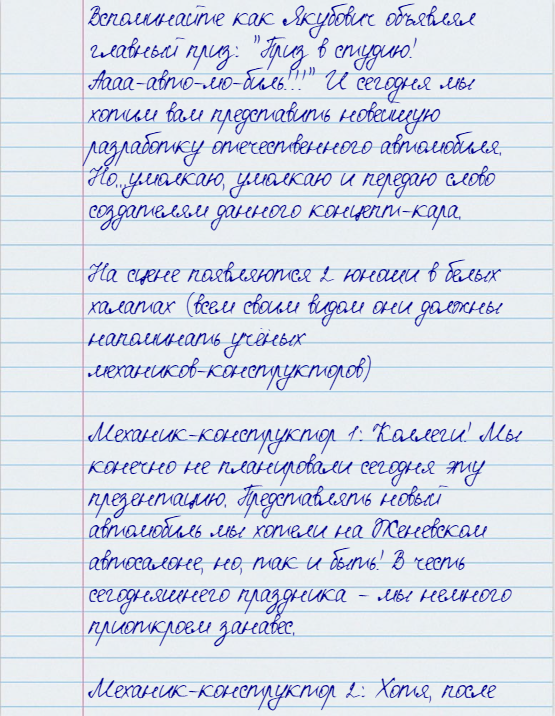 Вспоминайте как Якубович объявлял
главный приз: "Приз в студию!
Аааа-авто-мо-биль!!!" И сегодня мы
хотим вам представить новейшую
разработку отечественного автомобиля.
Но...умолкаю, умолкаю и передаю слово
создателям данного концепт-кара.
На сцене появляются 2 юноши в белых
халатах (всем своим видом они должны
напоминать учёных
механиков-конструкторов)
Механик-конструктор 1: Коллеги! Мы
конечно не планировали сегодня эту
презентацию. Представлять новый
автомобиль мы хотели на Женевском
автосалоне, но, так и быть! В честь
сегодняшнего праздника - мы немного
приоткроем занавес.
Механик-конструктор 2: Хотя, после